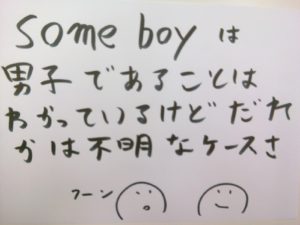 some boy は
男子であることは
わかっているけどだれ
かは不明なケースさ
フーン